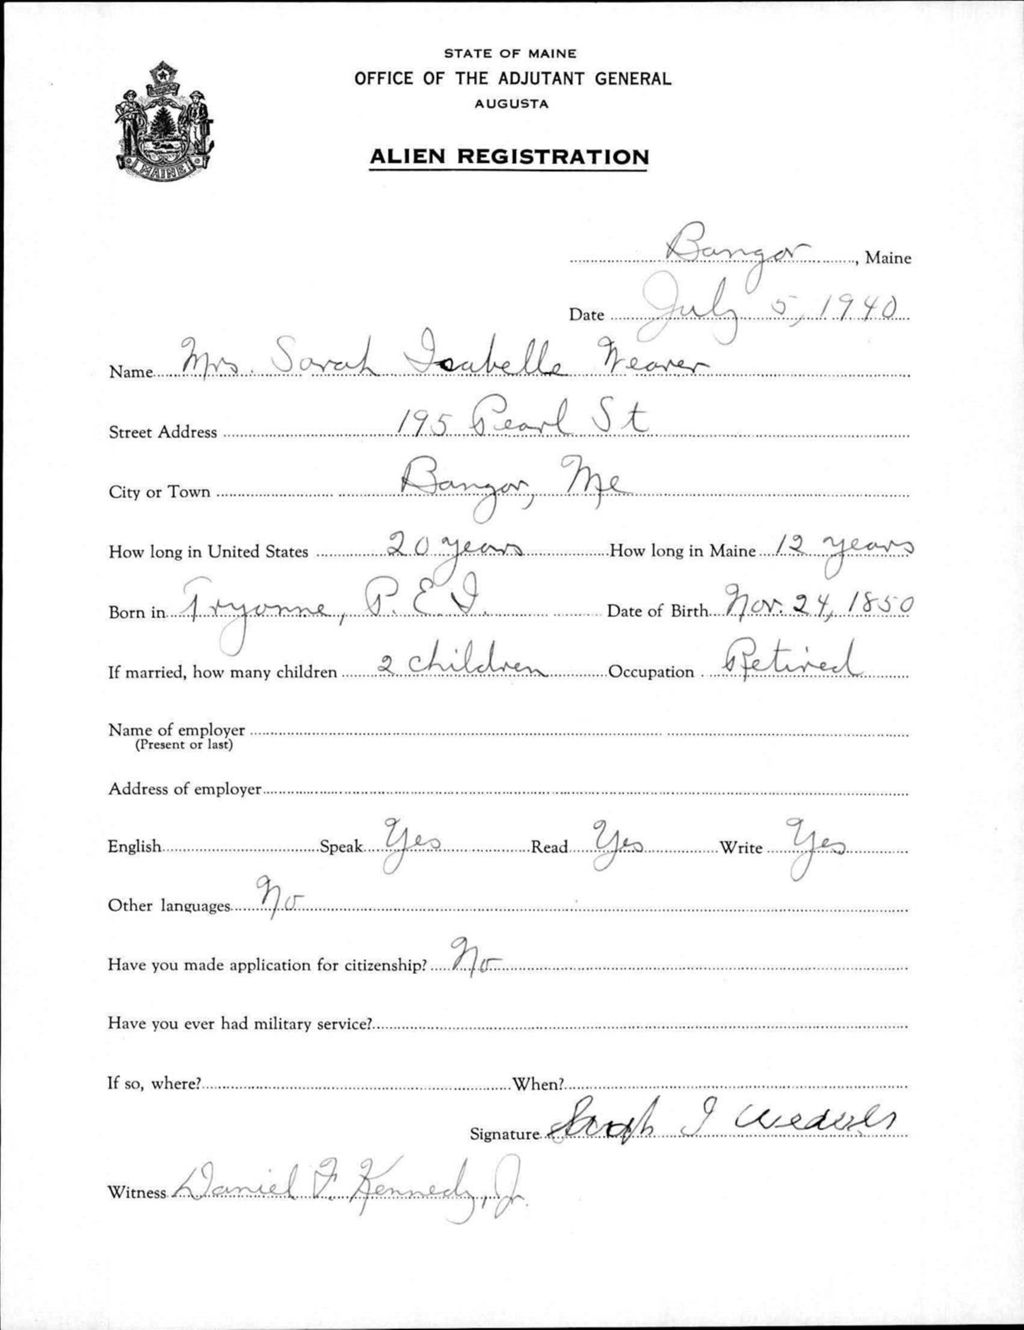 STATE OF MAINE
OFFICE OF THE ADJUTANT GENERAL
AUGUSTA
ALIEN REGISTRATION
MAINE
Bangor, Maine
Date July 5, 1940
Name Mrs. Sarah Isabelle Weaver
Street Address 195 Pearl St
City or Town Bangor, Me
How long in United States 20 years How long in Maine 12 years
Born in Tryonne, P. E. I. Date of Birth Nov. 24, 1850
If married, how many children 2 children Occupation Retired
Name of employer
(Present or last)
Address of employer
English Speak Yes Read Yes Write Yes
Other languages No
Have you made application for citizenship? No
Have you ever had military service?
If so, where? When?
Signature Sarah I Weaver
Witness Daniel F. Kennedy, Jr.